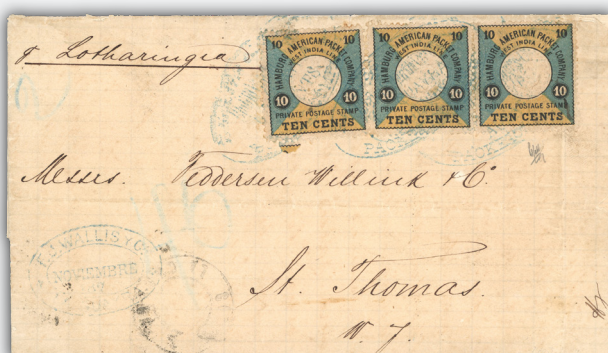 pr Lotharingia
10 10
HAMBURG AMERICAN PACKET COMPANY
WEST INDIA LINE
10 10
PRIVATE POSTAGE STAMP
TEN CENTS
10 10
HAMBURG AMERICAN PACKET COMPANY
WEST INDIA LINE
10 10
PRIVATE POSTAGE STAMP
TEN CENTS
10 10
HAMBURG AMERICAN PACKET COMPANY
WEST INDIA LINE
10 10
PRIVATE POSTAGE STAMP
TEN CENTS
Messrs. Feddersen Willink & Co.
WALLIS Y Ca
NOVIEMBRE
St. Thomas.
W. J.